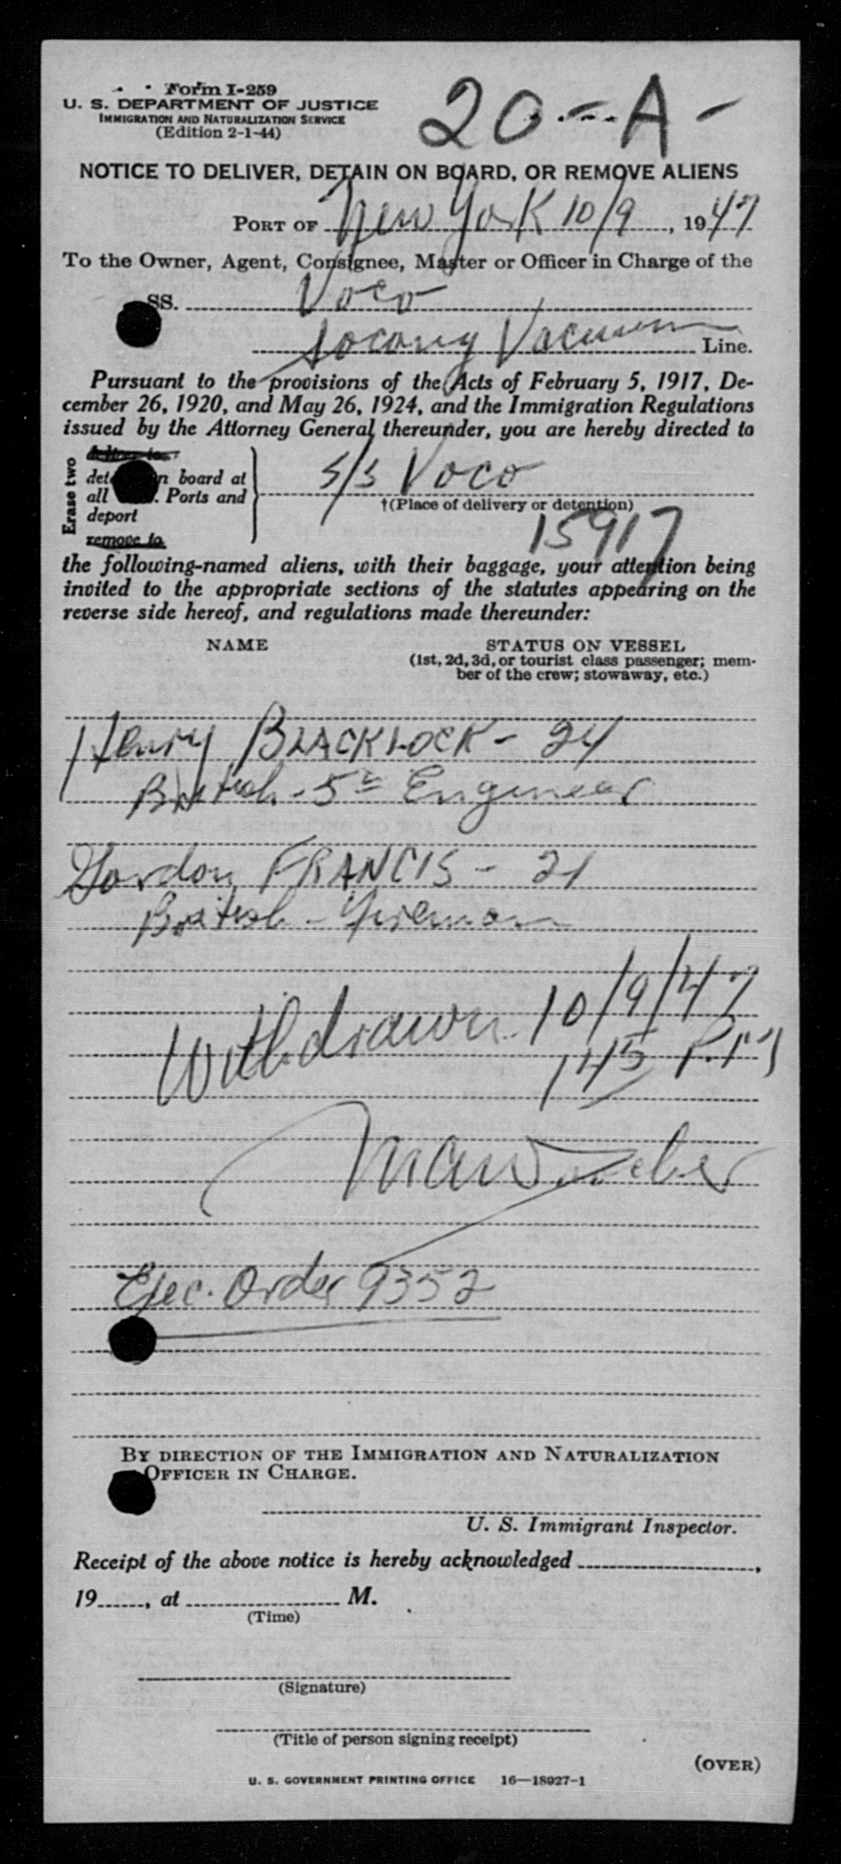 Form I-259
20 - A -
U. S. DEPARTMENT OF JUSTICE
IMMIGRATION AND NATURALIZATION SERVICE
(Edition 2-1-44)
NOTICE TO DELIVER, DETAIN ON BOARD, OR REMOVE ALIENS
PORT OF New York 10/9, 1947
To the Owner, Agent, Consignee, Master or Officer in Charge of the
SS. Voco
Socony Vacuum Line.
Pursuant to the provisions of the Acts of February 5, 1917, De-
cember 26, 1920, and May 26, 1924, and the Immigration Regulations
issued by the Attorney General thereunder, you are hereby directed to
Erase two
board at
all Ports and
deport
remove to
S/S Voco
†(Place of delivery or detention)
15917
the following-named aliens, with their baggage, your attention being
invited to the appropriate sections of the statutes appearing on the
reverse side hereof, and regulations made thereunder:
NAME
STATUS ON VESSEL
(1st, 2d, 3d, or tourist class passenger; mem-
ber of the crew; stowaway, etc.)
Henry BLACKLOCK - 24
British - 5th Engineer
Gordon FRANCIS - 21
British - Fireman
Withdrawn 10/9/47
145 P.M
Exec. Order 9352
BY DIRECTION OF THE IMMIGRATION AND NATURALIZATION
OFFICER IN CHARGE.
U. S. Immigrant Inspector.
Receipt of the above notice is hereby acknowledged ,
19 , at M.
(Time)
(Signature)
(Title of person signing receipt)
(OVER)
U. S. GOVERNMENT PRINTING OFFICE 16—18927-1